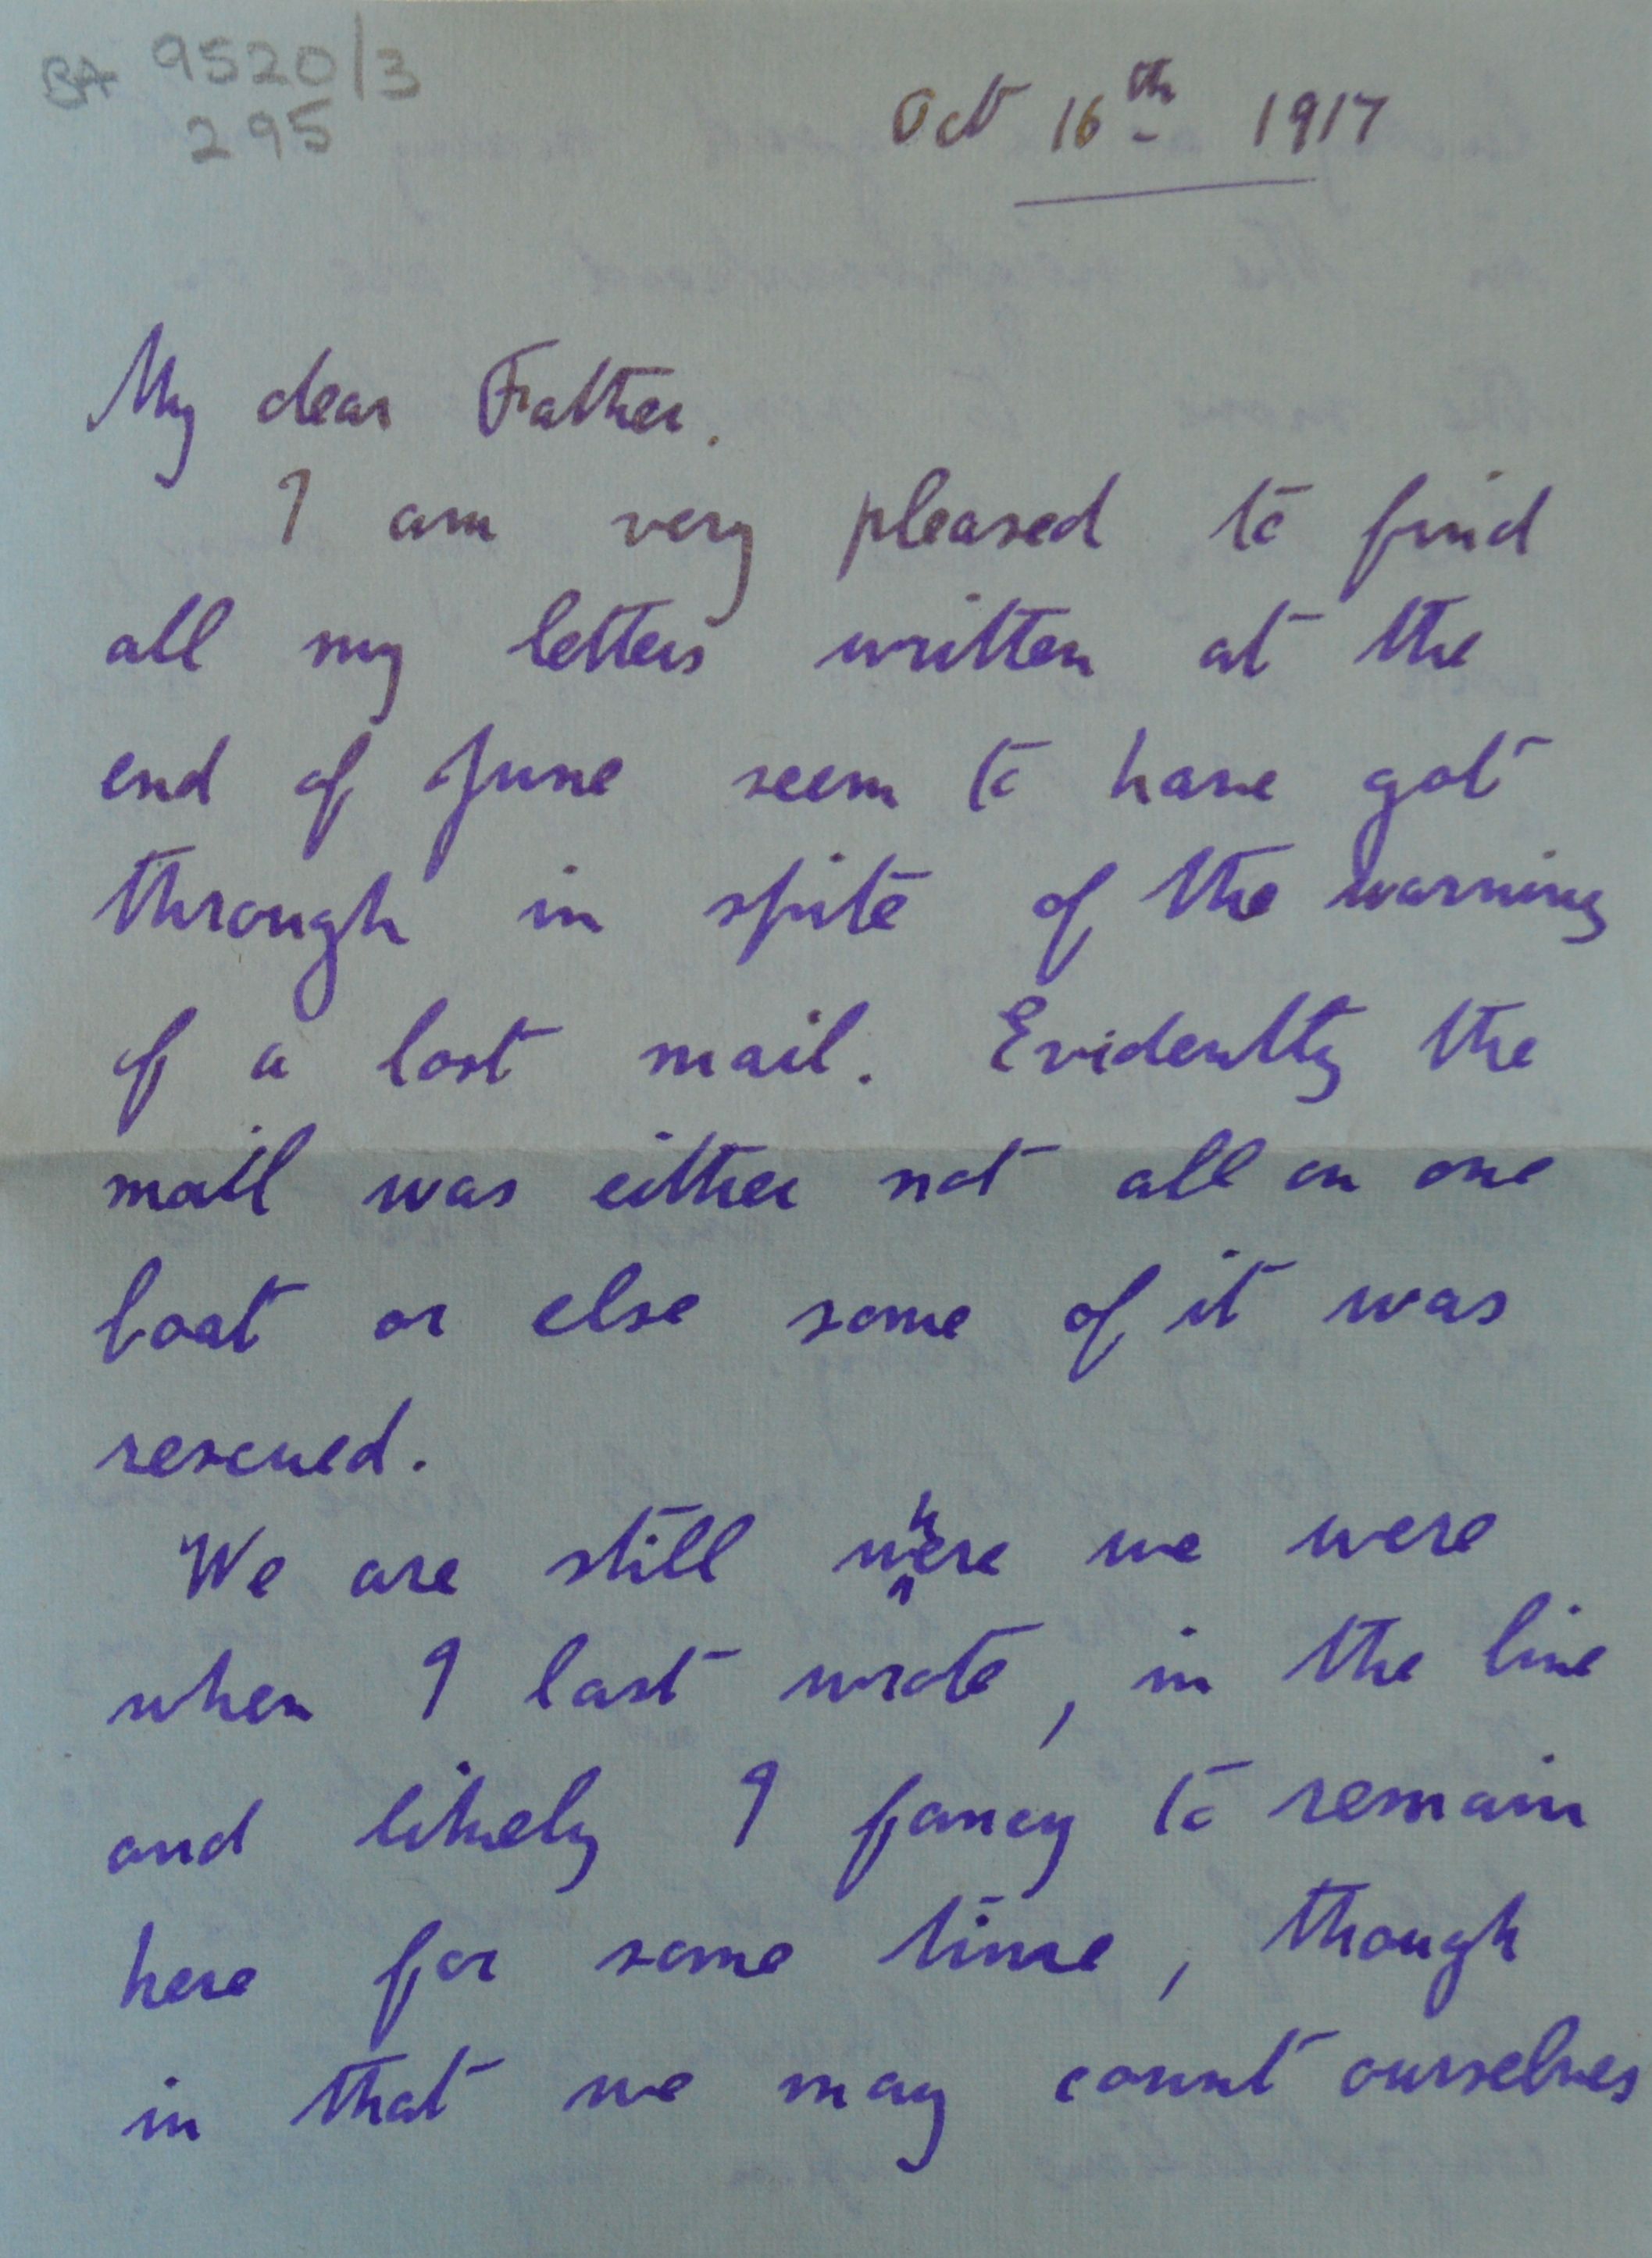 BA 9520/3
295
Oct 16th 1917
My dear Father.
I am very pleased to find
all my letters written at the
end of June seem to have got
through in spite of the warning
of a lost mail. Evidently the
mail was either not all on one
boat or else some of it was
rescued.
We are still where we were
when I last wrote, in the line
and likely I fancy to remain
here for some time, though
in that we may count ourselves